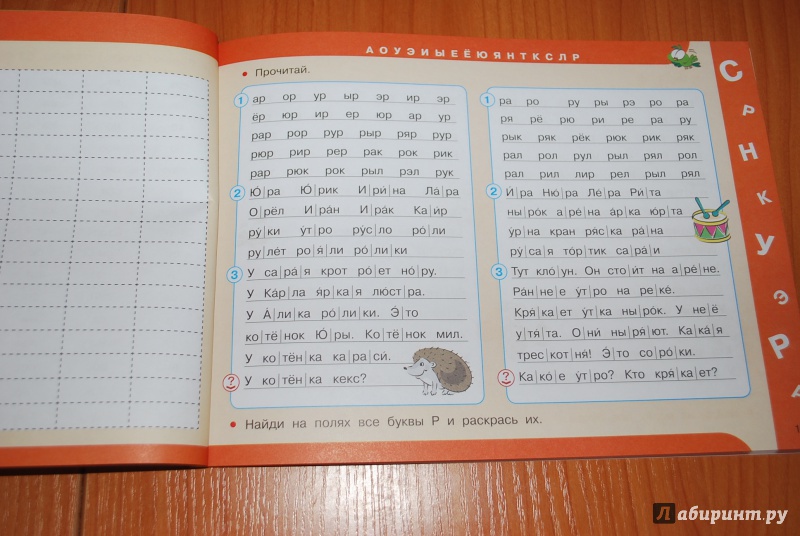 А О У Э И Ы Е Ё Ю Я Н Т К С Л Р
• Прочитай.
1 ар ор ур ыр эр ир эр
ёр юр ир ер юр ар ур
рар рор рур рыр ряр рур
рюр рир рер рак рок рик
рар рюк рок рыл рэл рук
2 Ю́|ра Ю́|рик И|ри́|на Ла́|ра
О|рёл И|ра́н И|ра́к Ка|и́р
ру́|ки у́т|ро ру́с|ло ро́|ли
ру|ле́т ро|я́|ли ро́|ли|ки
3 У са|ра́|я крот ро́|ет но́|ру.
У Ка́р|ла я́р|ка|я лю́ст|ра.
У А́|ли|ка ро́|ли|ки. Э́|то
ко|тё|нок Ю́|ры. Ко|тё|нок мил.
У ко|тён|ка ка|ра|си́.
? У ко|тён|ка кекс?
1 ра ро ру ры рэ ро ра
ря рё рю ри ре ра ру
рык ряк рёк рюк рик ряк
рал рол рул рыл рял рол
рал рил лир рел рыл рял
2 И́|ра Ню́|ра Ле́|ра Ри́|та
ны|ро́к а|ре́|на а́р|ка ю́р|та
у́р|на кран ря́с|ка ра́|на
ру́|са|я то́р|тик са|ра́|и
3 Тут кло́|ун. Он сто|и́т на а|ре́|не.
Ра́н|не|е у́т|ро на ре|ке́.
Кря́|ка|ет у́т|ка ны|ро́к. У не|ё
у|тя́|та. О|ни́ ны|ря́|ют. Ка|ка́|я
трес|кот|ня́! Э́|то со|ро́|ки.
? Ка|ко́|е у́т|ро? Кто кря́|ка|ет?
• Найди на полях все буквы Р и раскрась их.
С
Р
Н
К
У
Э
Р
Лабиринт.ру